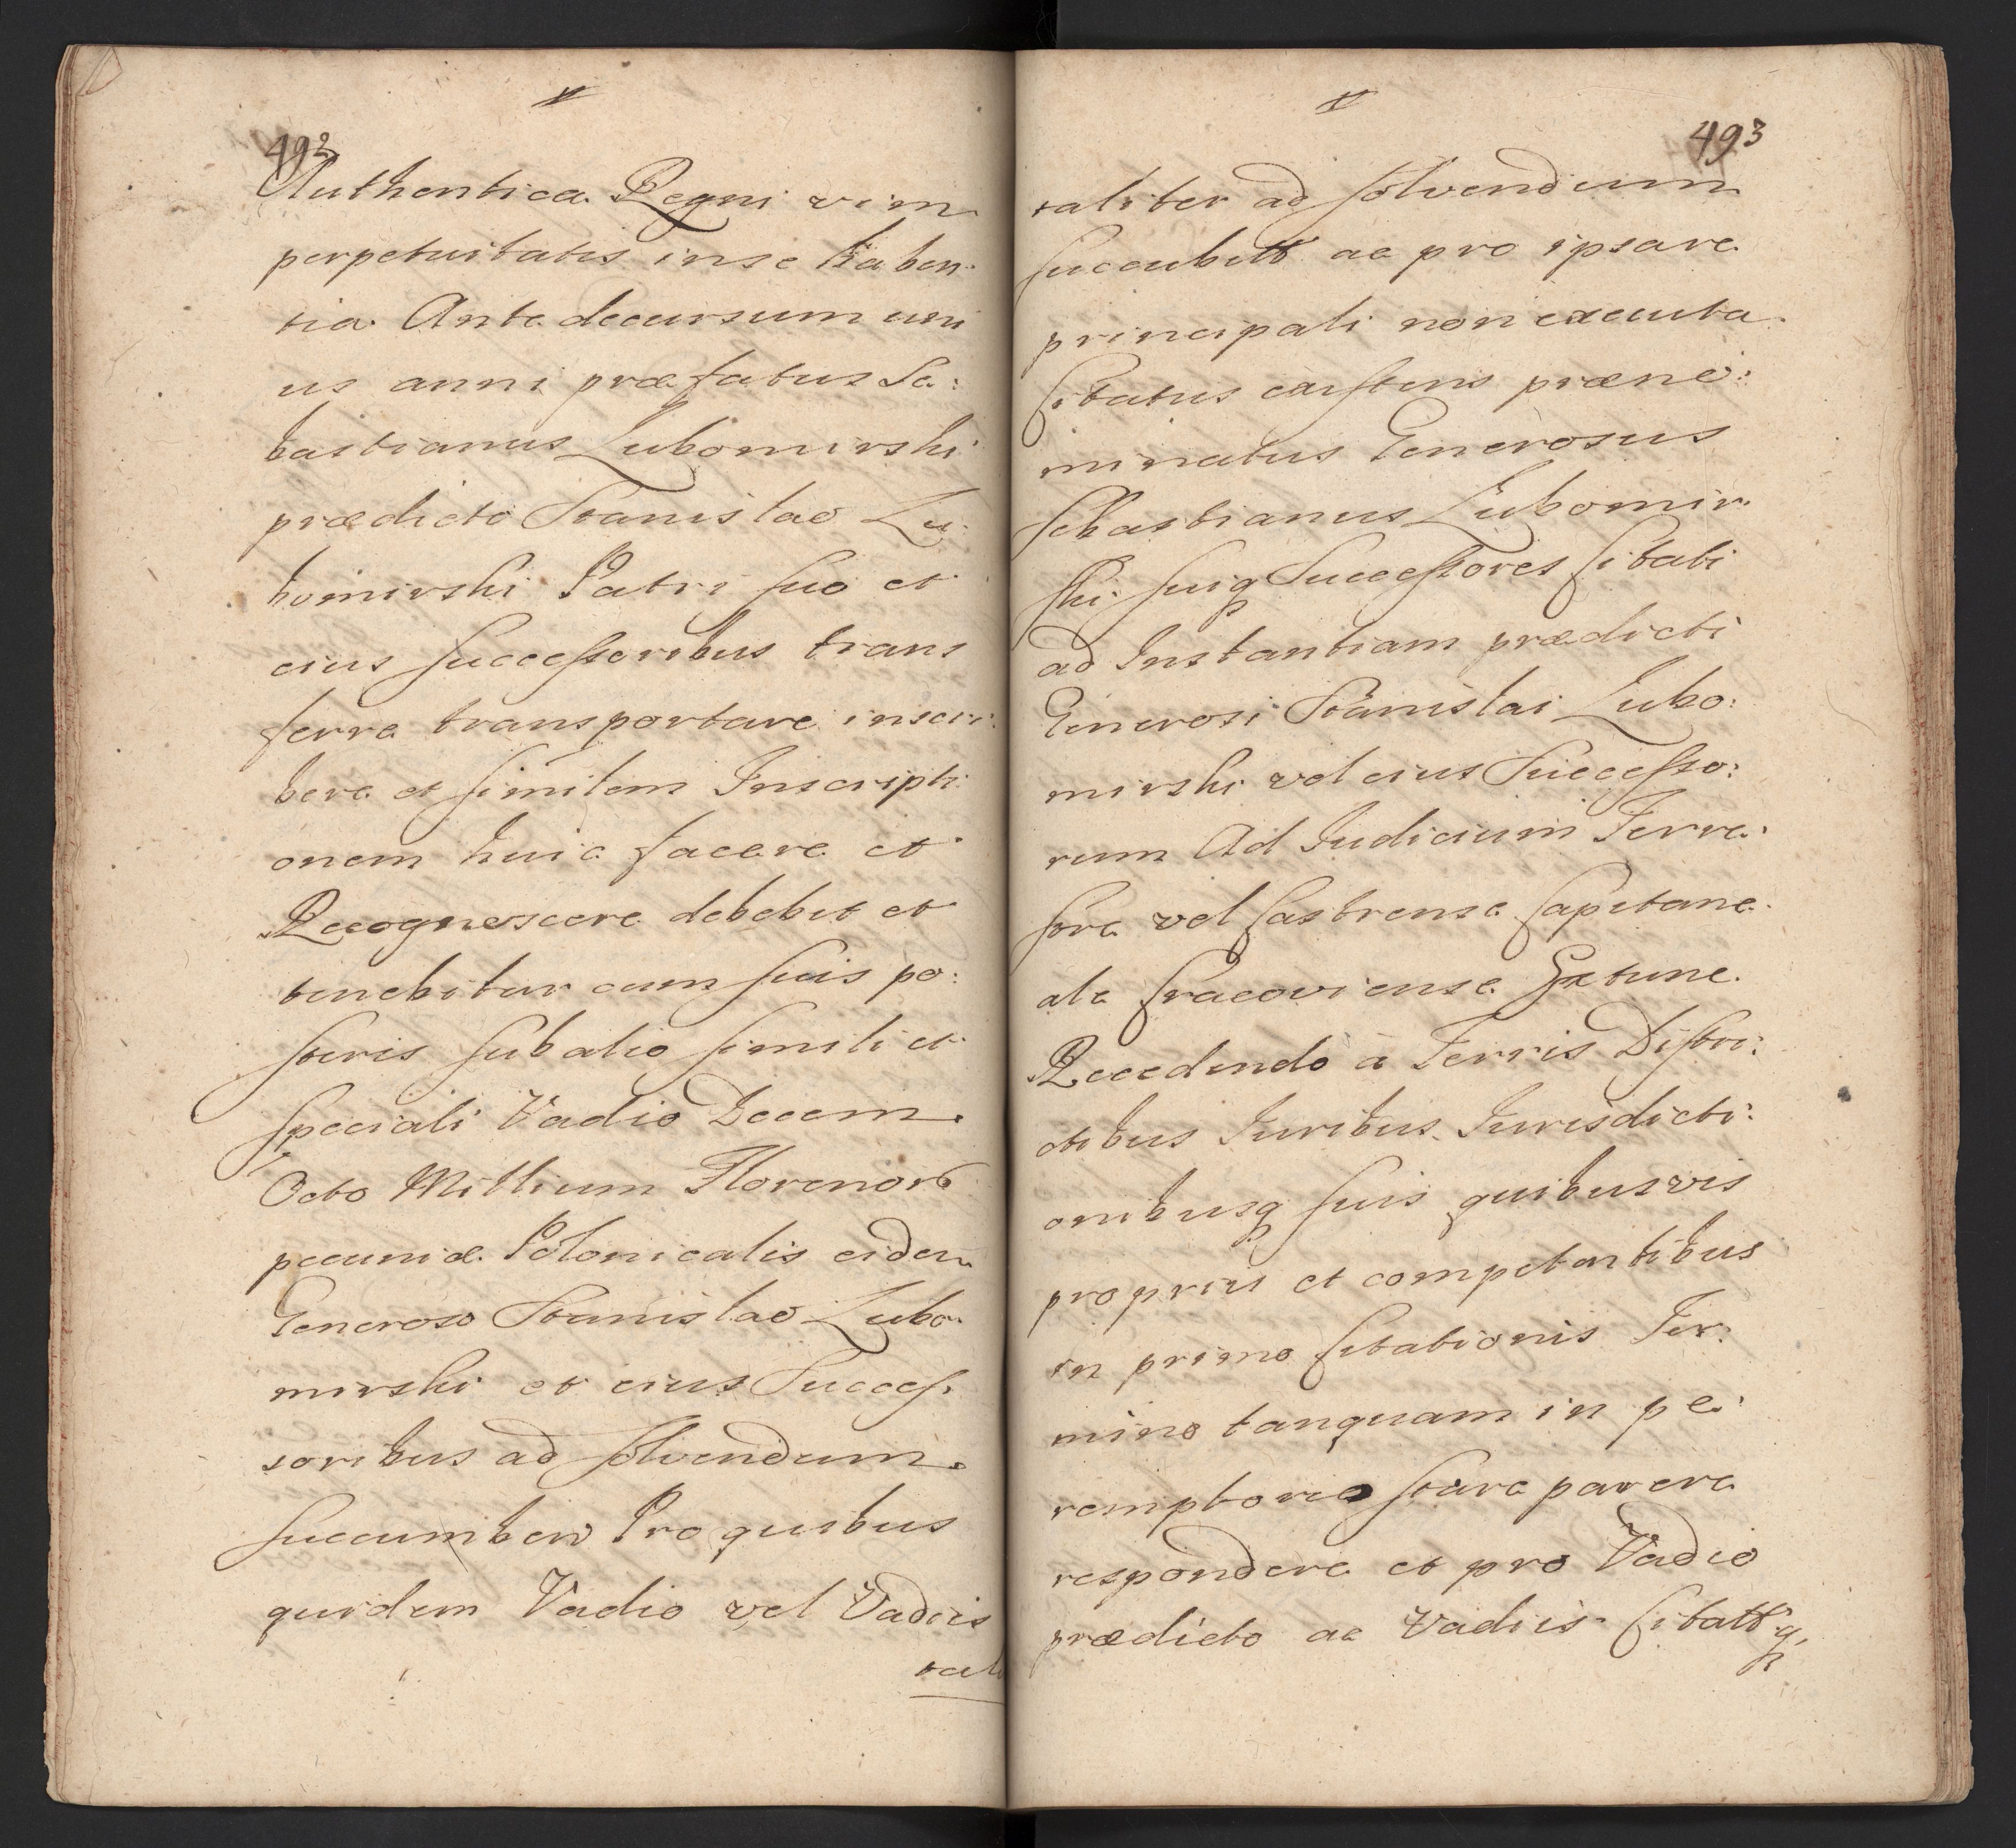 492
Authentica Regni vim
perpetuitatis in se haben-
tia. Ante decursum uni
us anni præfatus Se:
bastianus Lubomirski
prædicto Stanislao Lu:
bomirski Patri suo et
eius successoribus trans
ferre transportare inscri:
bere et similem Inscripti
onem huic facere et
Recognoscere debebit et
tenebitur cum suis po:
steris sub alio simili et
speciali Vadio Decem
Octo Millium Florenor
pecuniæ Polonicalis eidem
Generoso Stanislao Lubo:
mirski et eius Succes
soribus ad solvendum
succumben Pro quibus
quidem Vadio vel Vadiis
tali
493
taliter ad solvendum
succubitt ac pro ipsa re
principali non executa
Citatus existens præno:
minatus Generosus
Sebastianus Lubomir
ski suiq Successores Citati
ad Instantiam prædicti
Generosi Stanislai Lubo:
mirski vel eius Successo:
rum Ad Judicium Terre:
stre vel Castrense Capitane
ale Cracoviense Extunc
Recedendo à Terris Distri:
ctibus Juribus Jurisdicti:
onibusq suis quibusvis
propriis et competentibus
in primo Citationis Ter:
mino tanquam in pe:
remptorio stare parere
respondere et pro Vadio
prædicto ac Vadiis Citattq